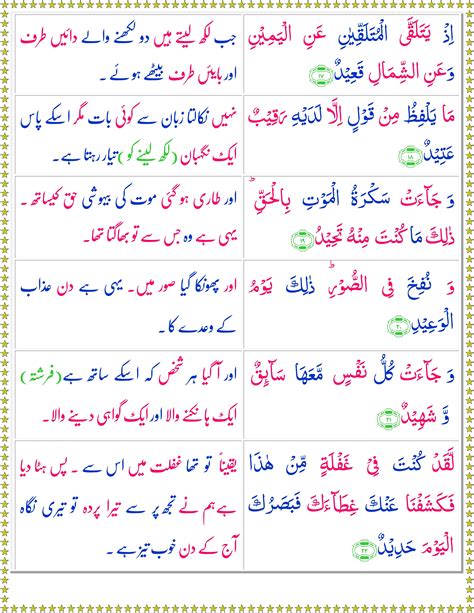 اِذۡ يَتَلَقَّى الۡمُتَلَقِّيٰنِ عَنِ الۡيَمِيۡنِ
وَعَنِ الشِّمَالِ قَعِيۡدٌ ۱۷
جب لکھ لیتے ہیں دو لکھنے والے دائیں طرف
اور بائیں طرف بیٹھے ہوئے ۔
مَا يَلۡفِظُ مِنۡ قَوۡلٍ اِلَّا لَدَيۡهِ رَقِيۡبٌ
عَتِيۡدٌ ۱۸
نہیں نکالتا زبان سے کوئی بات مگر اسکے پاس
ایک نگہبان (لکھ لینے کو) تیار رہتا ہے۔
وَ جَآءَتۡ سَكۡرَةُ الۡمَوۡتِ بِالۡحَـقِّ‌ؕ
ذٰلِكَ مَا كُنۡتَ مِنۡهُ تَحِيۡدُ ۱۹
اور طاری ہو گئی موت کی بیہوشی حق کیساتھ ۔
یہی ہے وہ جس سے تو بھاگتا تھا۔
وَ نُفِخَ فِى الصُّوۡرِ‌ؕ ذٰلِكَ يَوۡمُ
الۡوَعِيۡدِ ۲۰
اور پھونکا گیا صور میں۔ یہی ہے دن عذاب
کے وعدے کا ۔
وَ جَآءَتۡ كُلُّ نَفۡسٍ مَّعَهَا سَآئِقٌ
وَّ شَهِيۡدٌ ۲۱
اور آ گیا ہر شخص کہ اسکے ساتھ ہے (فرشتہ)
ایک ہانکنے والا اور ایک گواہی دینے والا۔
لَقَدۡ كُنۡتَ فِىۡ غَفۡلَةٍ مِّنۡ هٰذَا
فَكَشَفۡنَا عَنۡكَ غِطَآءَكَ فَبَصَرُكَ
الۡيَوۡمَ حَدِيۡدٌ ۲۲
یقیناً تو تھا غفلت میں اس سے ۔ پس ہٹا دیا
ہے ہم نے تجھ پر سے تیرا پردہ تو تیری نگاہ
آج کے دن خوب تیز ہے ۔